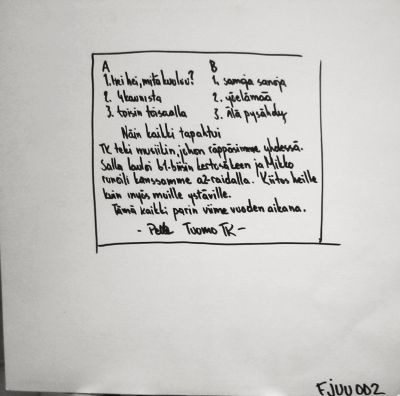 A B
1. hei hei, mitä kuuluu? 1. samoja sanoja
2. 4 kaunista 2. yöelämää
3. toisin toisaalla 3. Älä pysähdy
Näin kaikki tapahtui
TK teki musiikin, johon räppäsimme yhdessä.
Salla lauloi b1-biisin kertosäkeen ja Mikko
runoili kanssamme a2-raidalla. Kiitos heille
kuin myös muille ystäville.
Tämä kaikki parin viime vuoden aikana.
- Pelle Tuomo TK -
FJUU 002